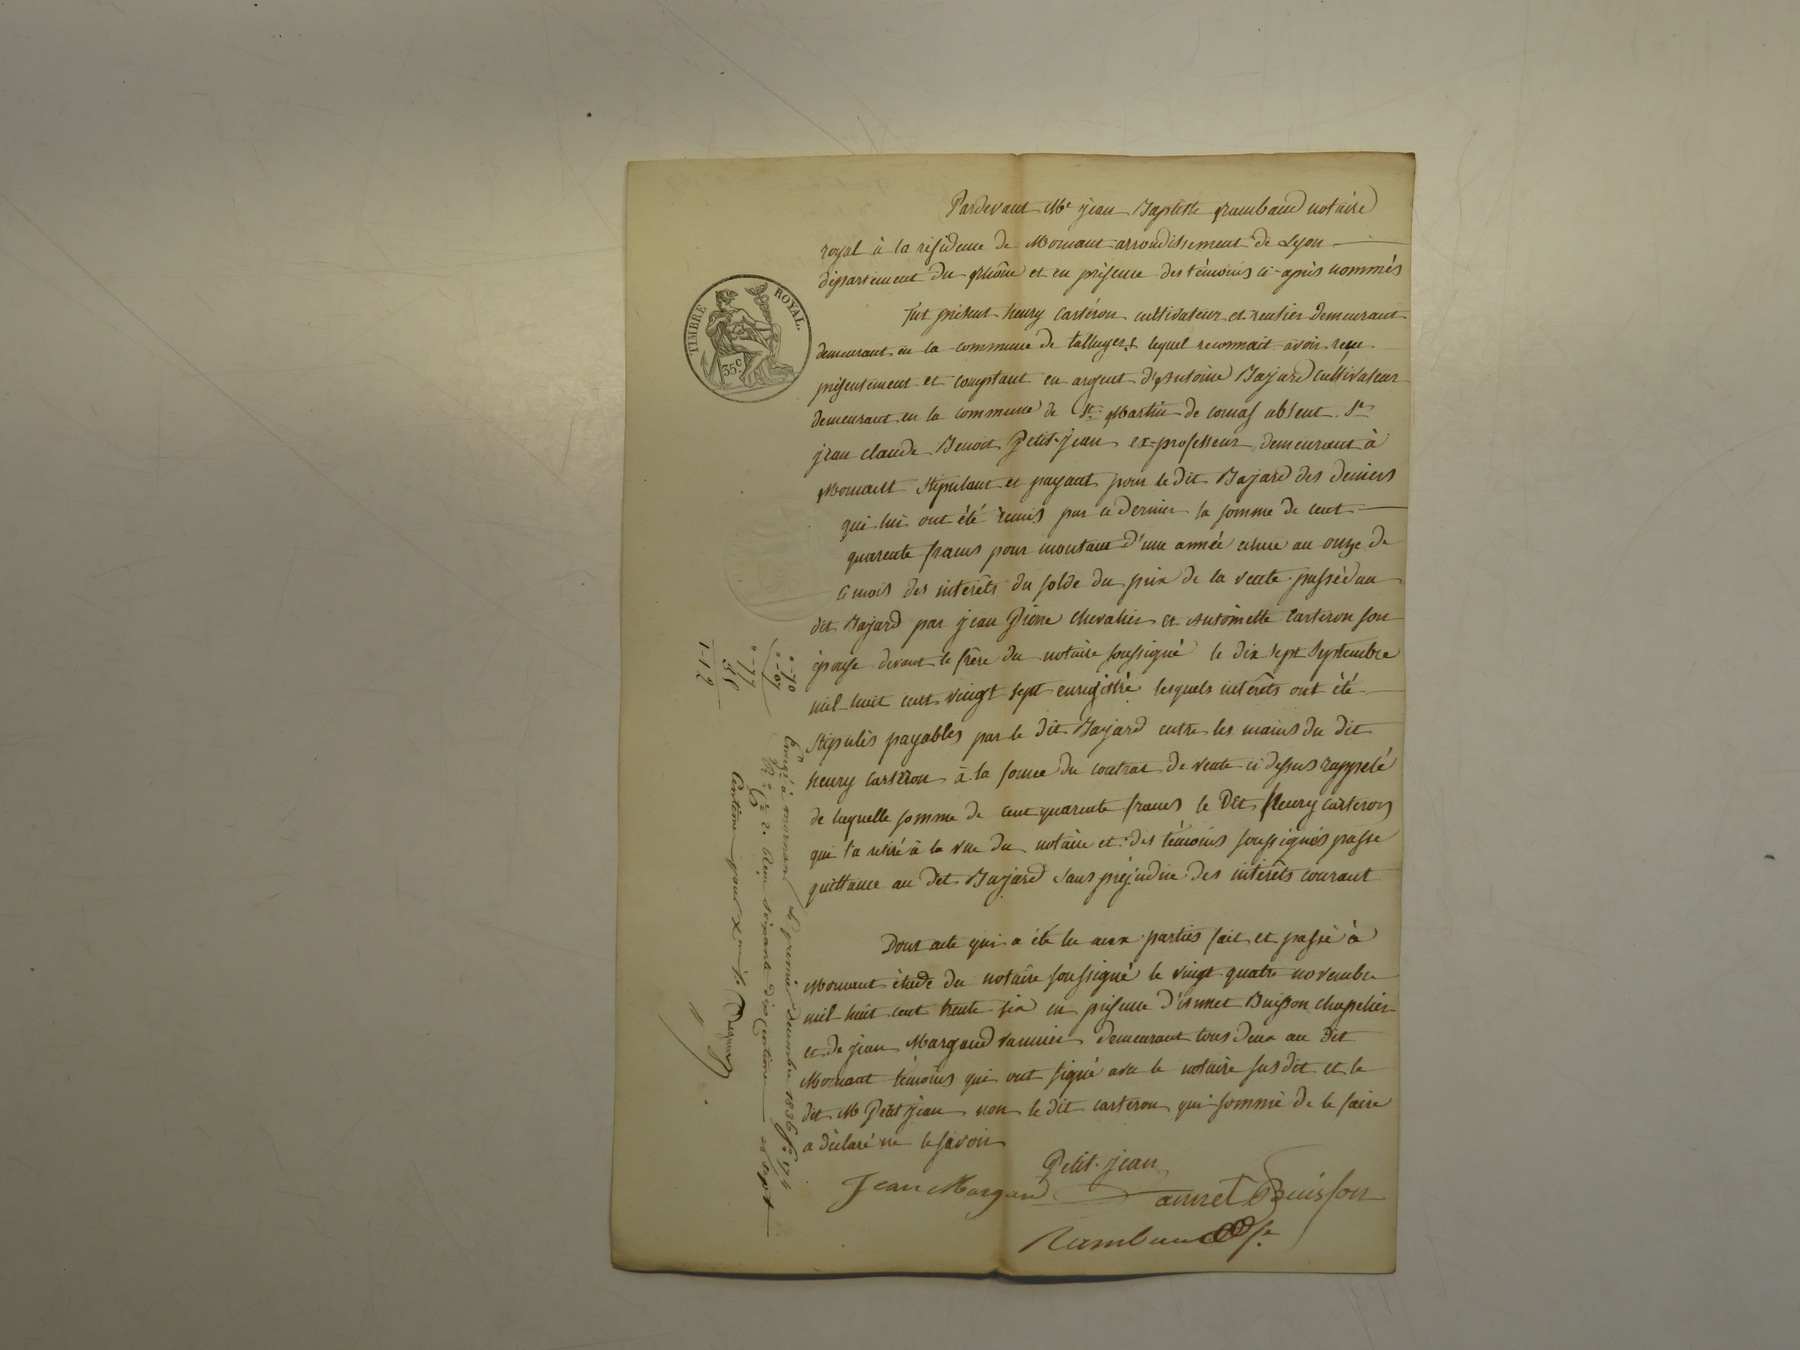 Pardevant Me jean Baptiste Rambaud notaire
royal à la résidence de Mornant arrondissement de Lyon
département du Rhône et en présence des témoins ci-après nommés
fut présent henry Cartéron cultivateur et rentier demeurant
demeurant en la commune de talluyers lequel reconnait avoir reçu
présentement et comptant en argent d'Antoine Bajard cultivateur
demeurant en la commune de St Martin de cornas absent. Sr
jean claude Benoit Petit-jean ex-professeur demeurant à
Mornant stipulant et payant pour le dit Bajard des deniers
qui lui ont été remis par ce dernier la somme de cent
quarente francs pour montant d'une année échue au onze de
ce mois des intérêts du solde du prix de la vente passée au
dit Bajard par jean Pierre Chevalier et Antoinette Carteron son
épouse devant le frère du notaire soussigné le dix sept Septembre
mil huit cent vingt sept enregistré lesquels intérêts ont été
stipulés payables par le dit Bajard entre les mains du dit
henry Cartéron à la forme du contrat de vente ci dessus rappelé
de laquelle somme de cent quarente francs le Dit henry carteron
qui l'a retiré à la vue du notaire et des témoins soussignés passe
quittance au Dit Bajard sans préjudice des intérêts courant
Dont acte qui a été lu aux parties fait et passé à
Mornant étude du notaire soussigné le vingt quatre novembre
mil huit cent trente six en présence d'annet Buisson chapelier
et de jean Margand vannier demeurant tous deux au dit
Mornant témoins qui ont signé avec le notaire susdit et le
dit M Petit jean non le dit carteron qui sommé de le faire
a déclaré ne le savoir
Petit-jean
Jean Margand annet Buisson
Rambaud
TIMBRE ROYAL.
35c
"-70
"-07
"-77
35
1-12
Enregé à mornant le premier décembre 1836 fo 174
Ro Co 2. Reçu soixante dix centimes et sept
Centimes pour Xme